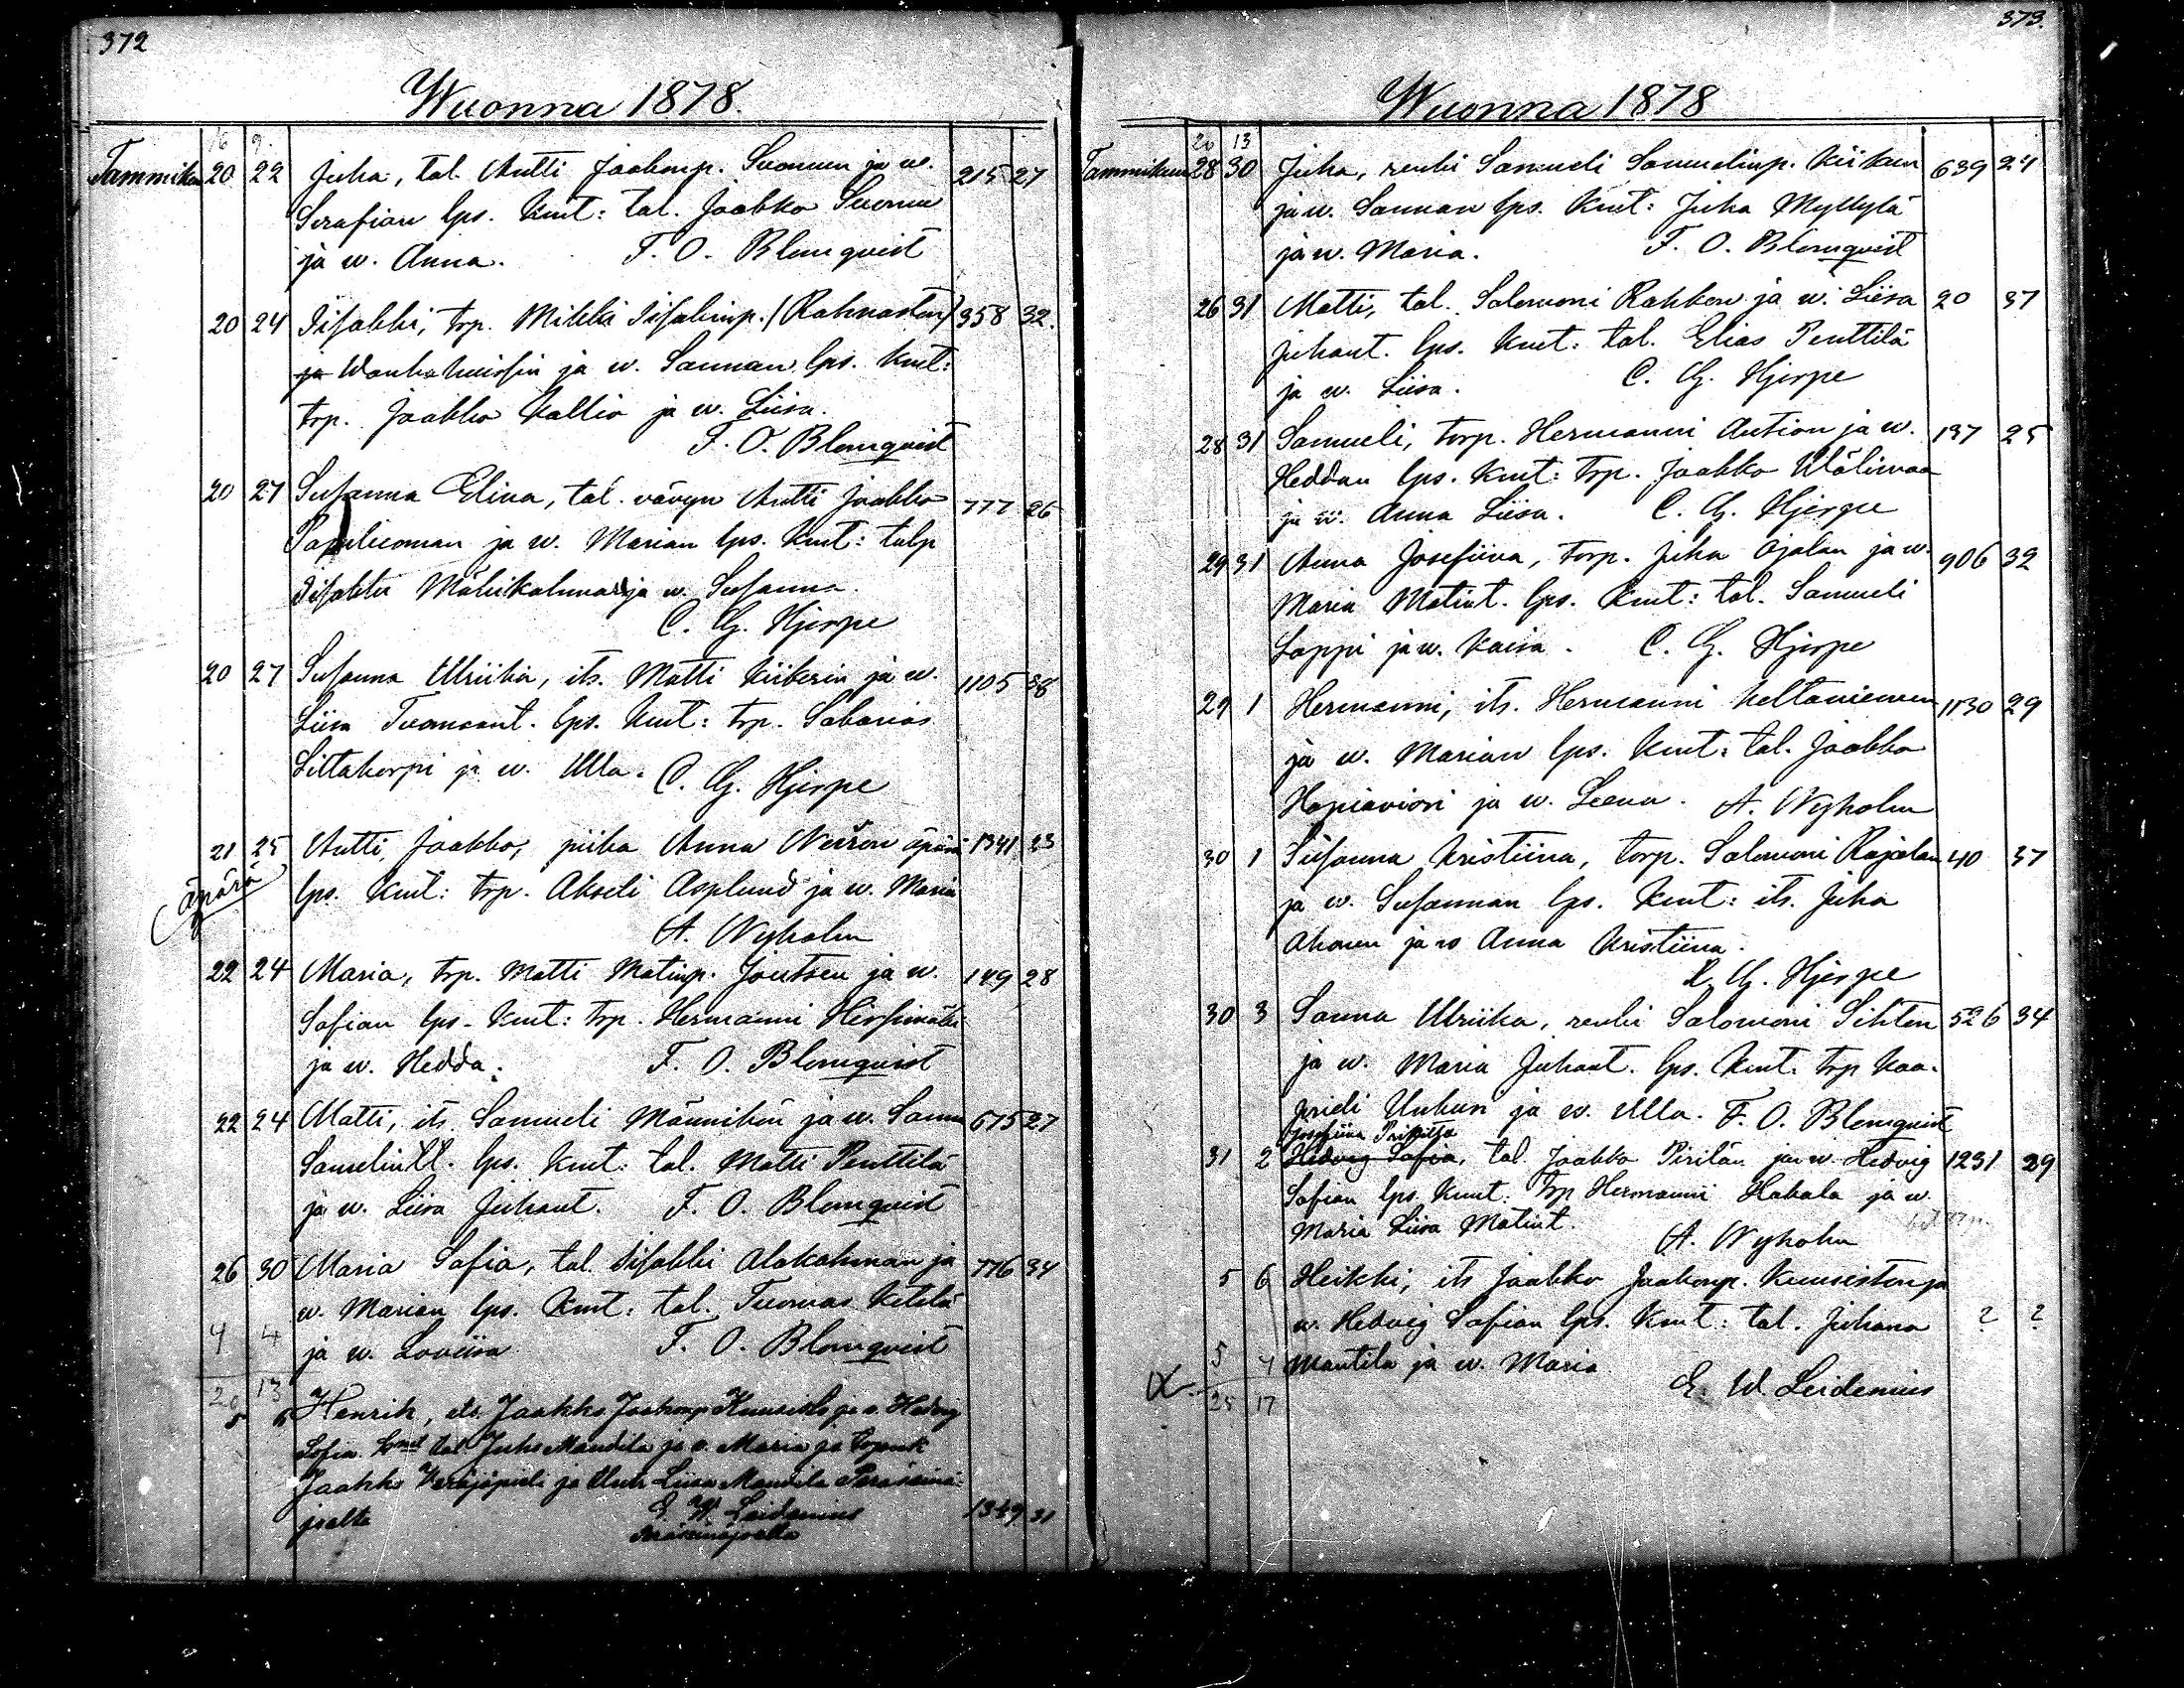 372
Wuonna 1878.
16 9.
Tammikuu 20 22 Juha, tal. Antti Jaakonp. Suomen ja w. 215 27
Serafian lps. Kmt: tal. Jaakko Suomen
ja w. Anna. F. O. Blomqvist
20 24 Iisakki, trp. Mikki Iisakinp. (Rahnasten) 358 32.
ja Wanhakuissin ja w. Sannan lps. Kmt:
trp. Jaakko Kallio ja w. Liisa.
F. O. Blomqvist
20 27 Susanna Elina, tal. vävyn Antti Jaakko 777 26
ja w. Marian lps. Kmt: talp
Iisakki ja w. Susanna.
C. G. Hjerpe
20 27 Susanna Ulriika, its. Matti Kiikerin ja w. 1105 38
Liisa Tuomaant. lps. Kmt: trp. Sakarias
Siltakorpi ja w. Ulla. C. G. Hjerpe
21 25 Antti Jaakko, piika Anna äpärä 1341 23
äpärä
lps. Kmt: trp. Akseli Asplund ja w. Maria
A. Nyholm
22 24 Maria, trp. Matti Matinp. Joutsen ja w. 149 28
Sofian lps. Kmt: trp. Hermanni Hirsimäki
ja w. Hedda. F. O. Blomqvist
22 24 Matti, its. Samueli Männikön ja w. Sanna 675 27
lps. Kmt: tal. Matti Penttilä
ja w. Liisa Juhant. F. O. Blomqvist
26 30 Maria Sofia, tal. Iisakki Alakahman ja 776 34
w. Marian lps. Kmt: tal. Tuomas Ketola
4 4 ja w. Loviisa F. O. Blomqvist
20 13
5 6 Henrik, its. Jaakko Jaakonp Kuusisto ja v. Hedvig
Sofia. Kmt tal Juho Mantila ja v. Maria ja
Jaakko ja Liisa Mantila Peräseinä-
joelta E. W. Leidenius 1349 31
Peräseinäjoella
373.
Wuonna 1878
20 13
Tammikuu 28 30 Juha, renki Samueli Samuelinp. Kiikun 639 24
ja w. Sannan lps. Kmt: Juha Myllylä
ja w. Maria. F. O. Blomqvist
26 31 Matti, tal. Salomoni Rahkon ja w. Liisa 20 37
Juhant. lps. Kmt: tal. Elias Penttilä
ja w. Liisa. C. G. Hjerpe
28 31 Samueli, torp. Hermanni Antion ja w. 137 25
Heddan lps. Kmt: trp. Jaakko Wälimaa
ja w. Anna Liisa. C. G. Hjerpe
29 31 Anna Josefiina, torp. Juha Ojalan ja w. 906 32
Maria Matint. lps. Kmt: tal. Samueli
Lappi ja w. Kaisa. C. G. Hjerpe
29 1 Hermanni, its. Hermanni Keltaniemen 1130 29
ja w. Marian lps. Kmt: tal. Jaakko
Hopiavuori ja w. Leena. A. Nyholm
30 1 Susanna Kristiina, torp. Salomoni Rajalan 40 37
ja w. Susannan lps. Kmt: its. Juha
Ahonen ja w Anna Kristiina.
C. G. Hjerpe
30 3 Sanna Ulriika, renki Salomoni Sihton 526 34
ja w. Maria Juhant. lps. Kmt: trp Kaa-
prieli ja w. Ulla. F. O. Blomqvist
Josefiina Priskilla
31 2 Hedvig Sofia, tal. Jaakko Pirilän ja w. Hedvig 1231 29
Sofian lps. Kmt: trp Hermanni Hakala ja w.
Maria Liisa Matint. A. Nyholm
5 6 Heikki, its Jaakko Jaakonp. Kuusiston ja
w. Hedvig Sofian lps. Kmt: tal. Juhana ? ?
5 4 Mantila ja w. Maria
E. W. Leidenius
25 17